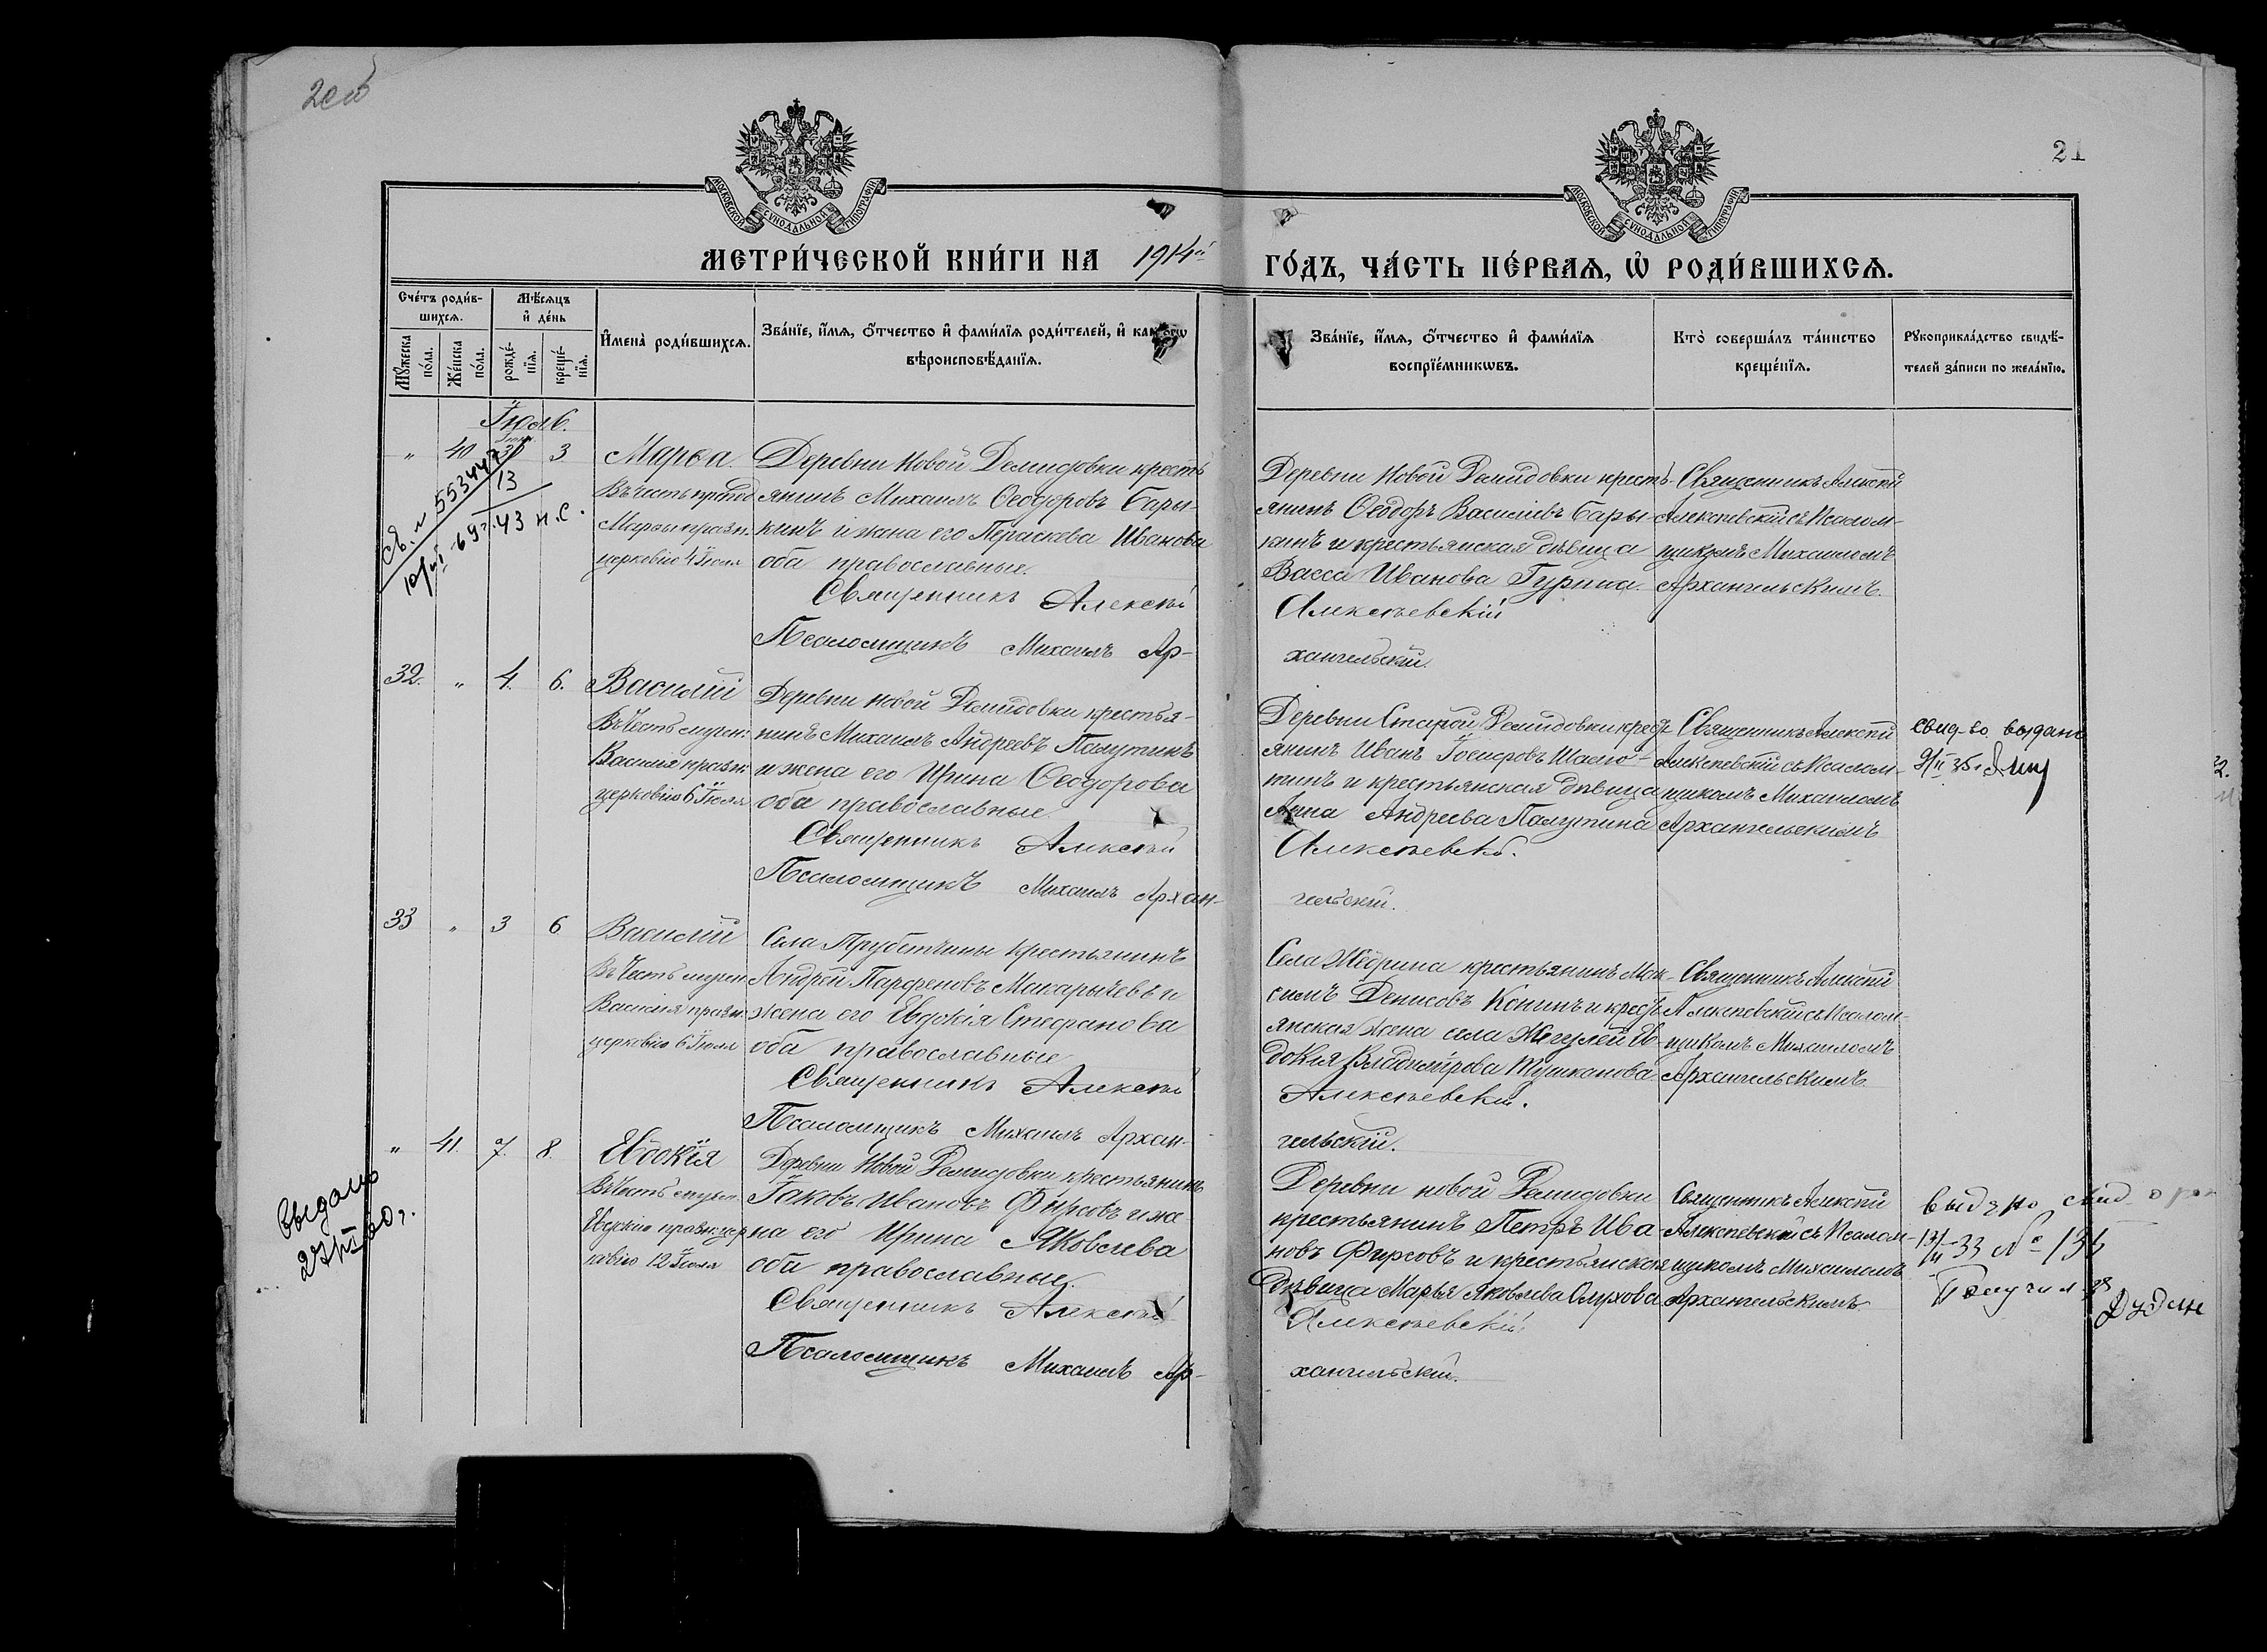 20об
21
МОСКОВСКОЙ СУНОДАЛЬНОЙ ТИПОГРАФІИ
МОСКОВСКОЙ СУНОДАЛЬНОЙ ТИПОГРАФІИ
МЕТРИ́ЧЕСКОЙ КНИ́ГИ НА 1914й ГО́ДЪ, ЧА́СТЬ ПЕ́РВАѦ, Ѡ РОДИ́ВШИХСѦ.
Сче́тъ роди́в-
шихсѧ.
Мꙋжеска по́ла.
Же́нска по́ла.
Мѣ́сѧцъ
и҆ де́нь
рожде́-
нїѧ.
креще́-
нїѧ.
И҆мена̀ роди́вшихсѧ.
Зва́нїе, и҆́мѧ, ѻ҆́тчество и҆ фами́лїѧ роди́телей, и҆ како́гѡ
вѣроисповѣ́данїѧ.
Зва́нїе, и҆́мѧ, ѻ҆́тчество и҆ фами́лїѧ
воспрїе́мникѡвъ.
Кто̀ соверша́лъ та́инство
креще́нїѧ.
Рꙋкоприкла́дство свидѣ́-
телей за́писи по жела́нїю.
Іюль.
" 40 30 3
13
Св. № 553447
43 н.с.
Марѳа.
Въ честь препод
Марѳы праздн.
церковію 4 Іюля
Деревни Новой Демидовки кресть
янинъ Михаилъ Ѳеодоровъ Бары-
кинъ и жена его Параскева Иванова
оба православные.
Священникъ Алексѣй
Псаломщикъ Михаилъ Ар-
Деревни Новой Демидовки кресть-
янинъ Ѳеодоръ Василіевъ Бары-
кинъ и крестьянская дѣвица
Васса Иванова Гурина.
Алексѣевскій
хангельскій.
Священникъ Алексѣй
Алексѣевскій съ Псалом-
щикомъ Михаиломъ
Архангельскимъ.
32. " 4. 6.
Василій
Въ Честь мучен:
Василія праздн:
церковію 6 Іюля
Деревни Новой Демидовки крестья-
нинъ Михаилъ Андреевъ Палутинъ
и жена его Ирина Ѳеодорова
оба православные.
Священникъ Алексѣй
Псаломщикъ Михаилъ Архан-
Деревни Старой Демидовки крест
янинъ Иванъ
тинъ и крестьянская дѣвица
Анна Андреева Палутина
Алексѣевскій.
гельскій.
Священникъ Алексѣй
Алексѣевскій съ Псалом-
щикомъ Михаиломъ
Архангельскимъ
свид-во выдано
33 " 3 6
Василій
Въ Честь мучен
Василія праздн
церковію 6 Іюля
Села Трубетчины Крестьянинъ
Андрей Парфеновъ Макарычевъ и
жена его Евдокія Стефанова
оба православные
Священникъ Алексѣй
Псаломщикъ Михаилъ Архан-
Села Жёдрина крестьянинъ Мак-
симъ Денисовъ Конинъ и крест
янская жена села Жегулей Ев-
докія Владимірова Тушканова
Алексѣевскій.
гельскій.
Священникъ Алексѣй
Алексѣевскій съ Псалом-
щикомъ Михаиломъ
Архангельскимъ
" 41. 7. 8.
Выдано
60 г.
Евдокія
Въ Честь мучен.
Евдокіи праздн: цер
ковію 12 Іюля
Деревни Новой Демидовки крестьянинъ
Іаковъ Ивановъ Фирсовъ и же-
на его Ирина Яковлева
оба православные.
Священникъ Алексѣй
Псаломщикъ Михаилъ Ар-
Деревни новой Демидовки
крестьянинъ Петръ Ива-
новъ Фирсовъ и крестьянская
дѣвица Марья Яковлева
Алексѣевскій
хангельскій.
Священникъ Алексѣй
Алексѣевскій съ Псалом-
щикомъ Михаиломъ
Архангельскимъ
выдано свид. о рож
33 №
Получил